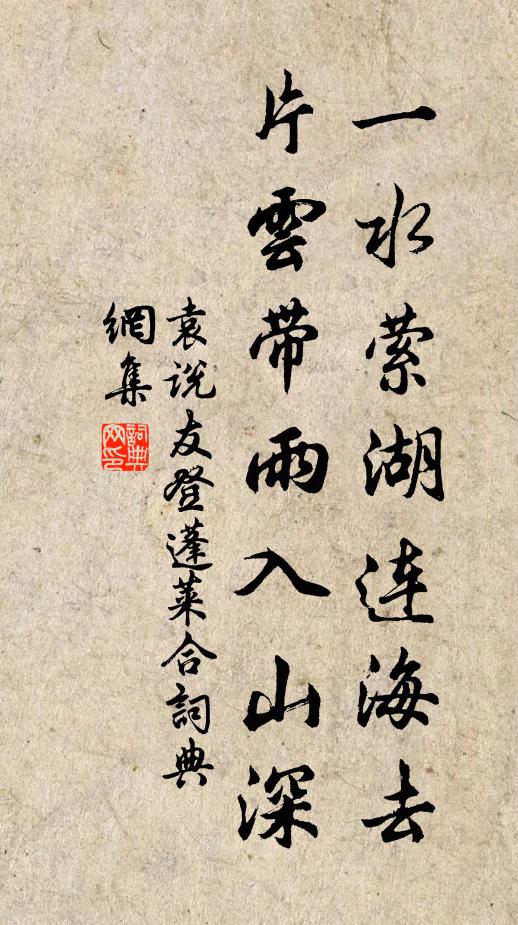 一水萦湖连海去
片雲带雨入山深
袁说友登蓬莱合詞典
網集
詞典
网印